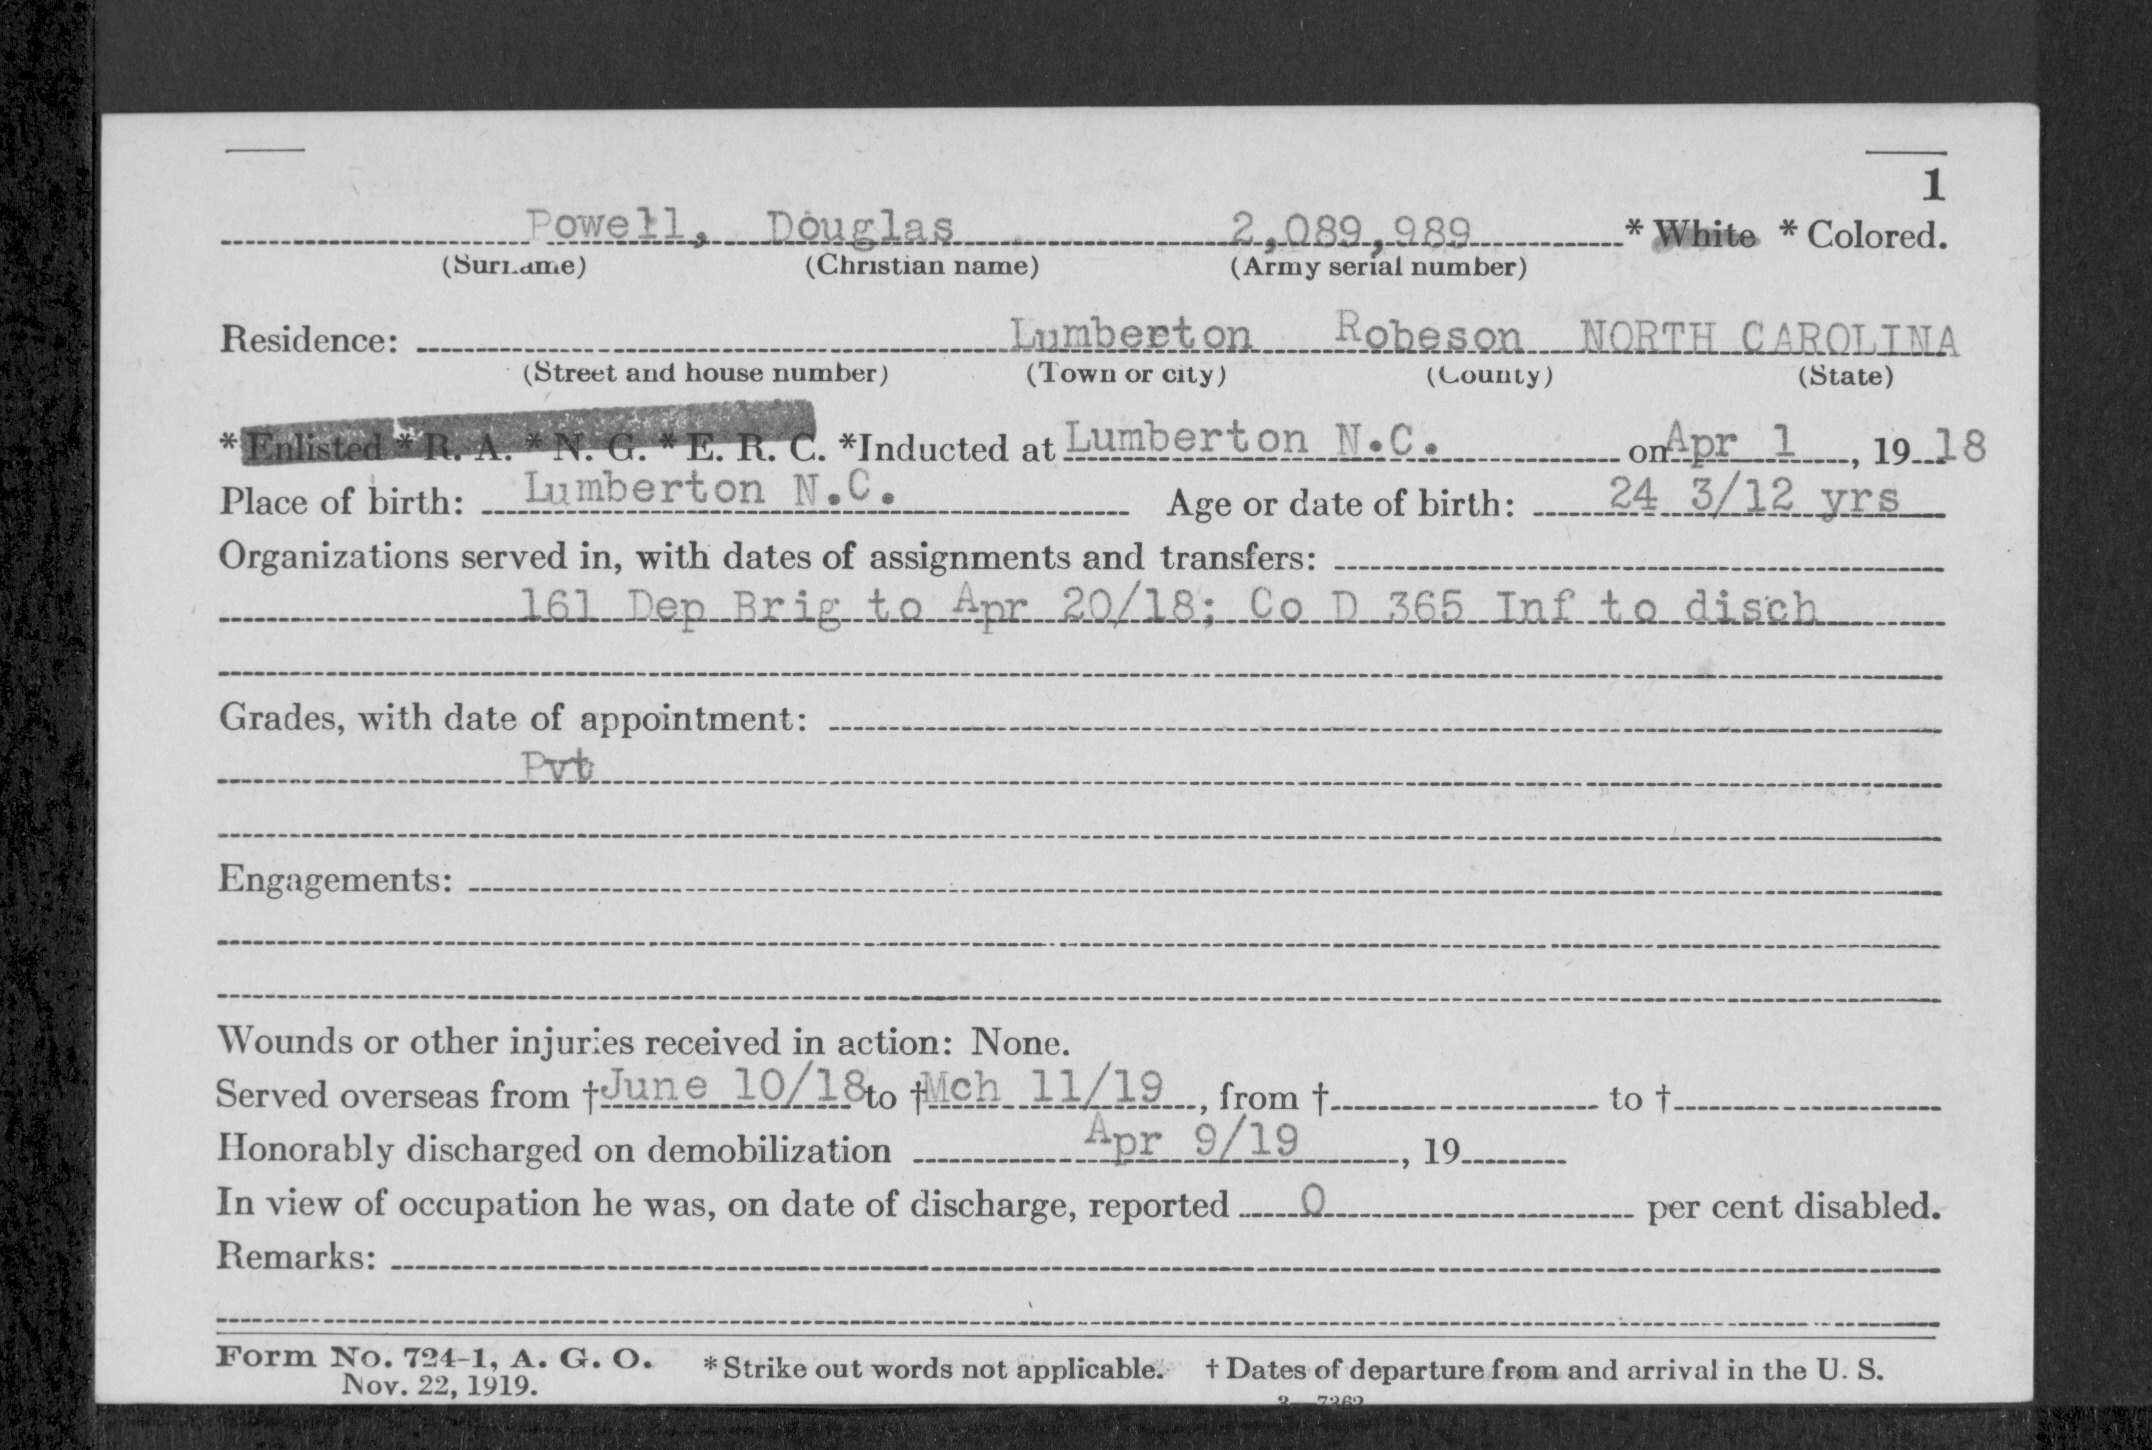 1
Powell, Douglas 2,089,989 * White * Colored.
(Surname) (Christian name) (Army serial number)
Residence: Lumberton Robeson NORTH CAROLINA
(Street and house number) (Town or city) (County) (State)
* Enlisted * R. A. * N. G. * E. R. C. *Inducted at Lumberton N.C. on Apr 1, 19 18
Place of birth: Lumberton N.C. Age or date of birth: 24 3/12 yrs
Organizations served in, with dates of assignments and transfers:
161 Dep Brig to Apr 20/18; Co D 365 Inf to disch
Grades, with date of appointment:
Pvt
Engagements:
Wounds or other injuries received in action: None.
Served overseas from † June 10/18 to † Mch 11/19, from † to †
Honorably discharged on demobilization Apr 9/19, 19
In view of occupation he was, on date of discharge, reported 0 per cent disabled.
Remarks:
Form No. 724-1, A. G. O. * Strike out words not applicable. † Dates of departure from and arrival in the U. S.
Nov. 22, 1919.